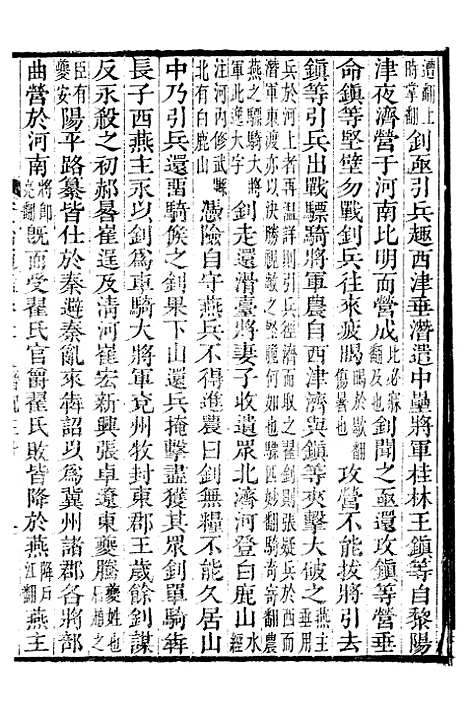 遭翻上時掌翻釗亟引兵趣西津垂潛遣中壘將軍桂林王鎮等自黎陽
津夜濟營于河南比明而營成比必寐翻及也釗聞之亟還攻鎮等營垂
命鎮等堅壁勿戰釗兵往來疲暍暍於歇翻傷暑也攻營不能拔將引去
鎮等引兵出戰驃騎將軍農自西津濟與鎮等夾擊大破之燕主
兵於河上者再温詳則濟而取之翟釗則張疑兵於西津潛軍東渡亦何如驃匹妙翻騎奇寄翻農
燕之驃騎大將軍此大字釗走還滑臺將妻子收遺衆北濟河登白鹿山水經
注河內脩武縣北有白鹿山憑險自守燕兵不得進農曰釗無糧不能久居山
中乃引兵還畱騎候之釗果下山還兵掩擊盡獲其衆釗單騎犇
長子西燕主永以釗爲車騎大將軍兗州牧封東郡王歲餘釗謀
反永殺之初郝晷崔逞及清河崔宏新興張卓遼東夔騰夔姓也趙
臣有夔安陽平路纂皆仕於秦避秦亂來犇詔以爲冀州諸郡各將部
曲營於河南將即亮翻既而受翟氏官爵翟氏敗皆降於燕降戶江翻燕主